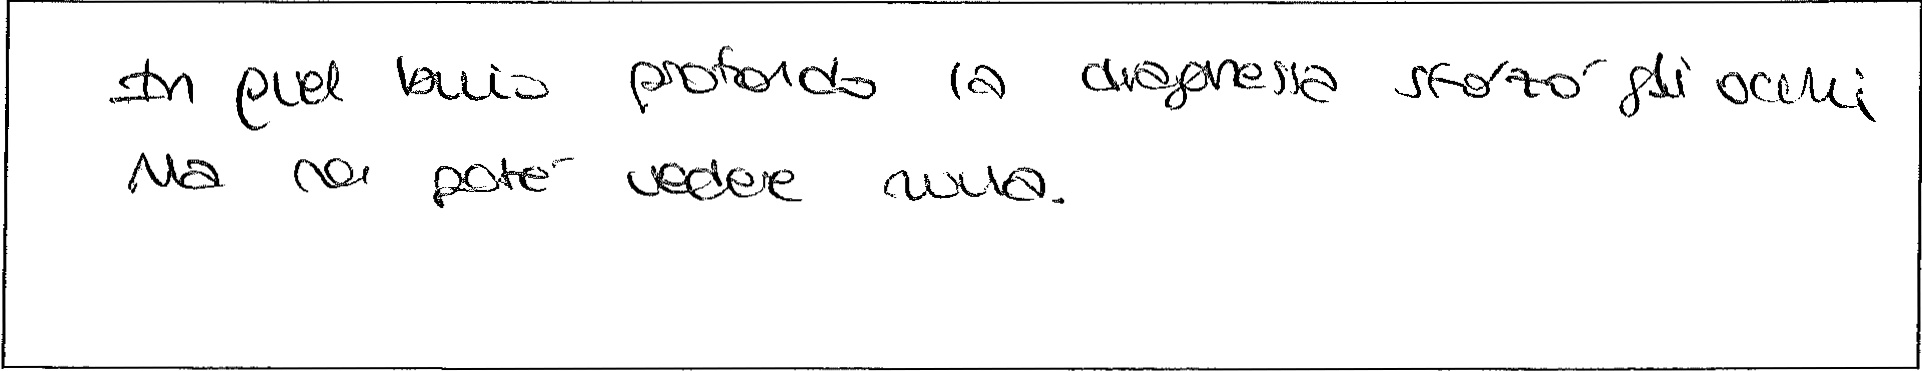 In quel buio profondo la dragonessa sforzò gli occhi
Ma non poté vedere nulla.